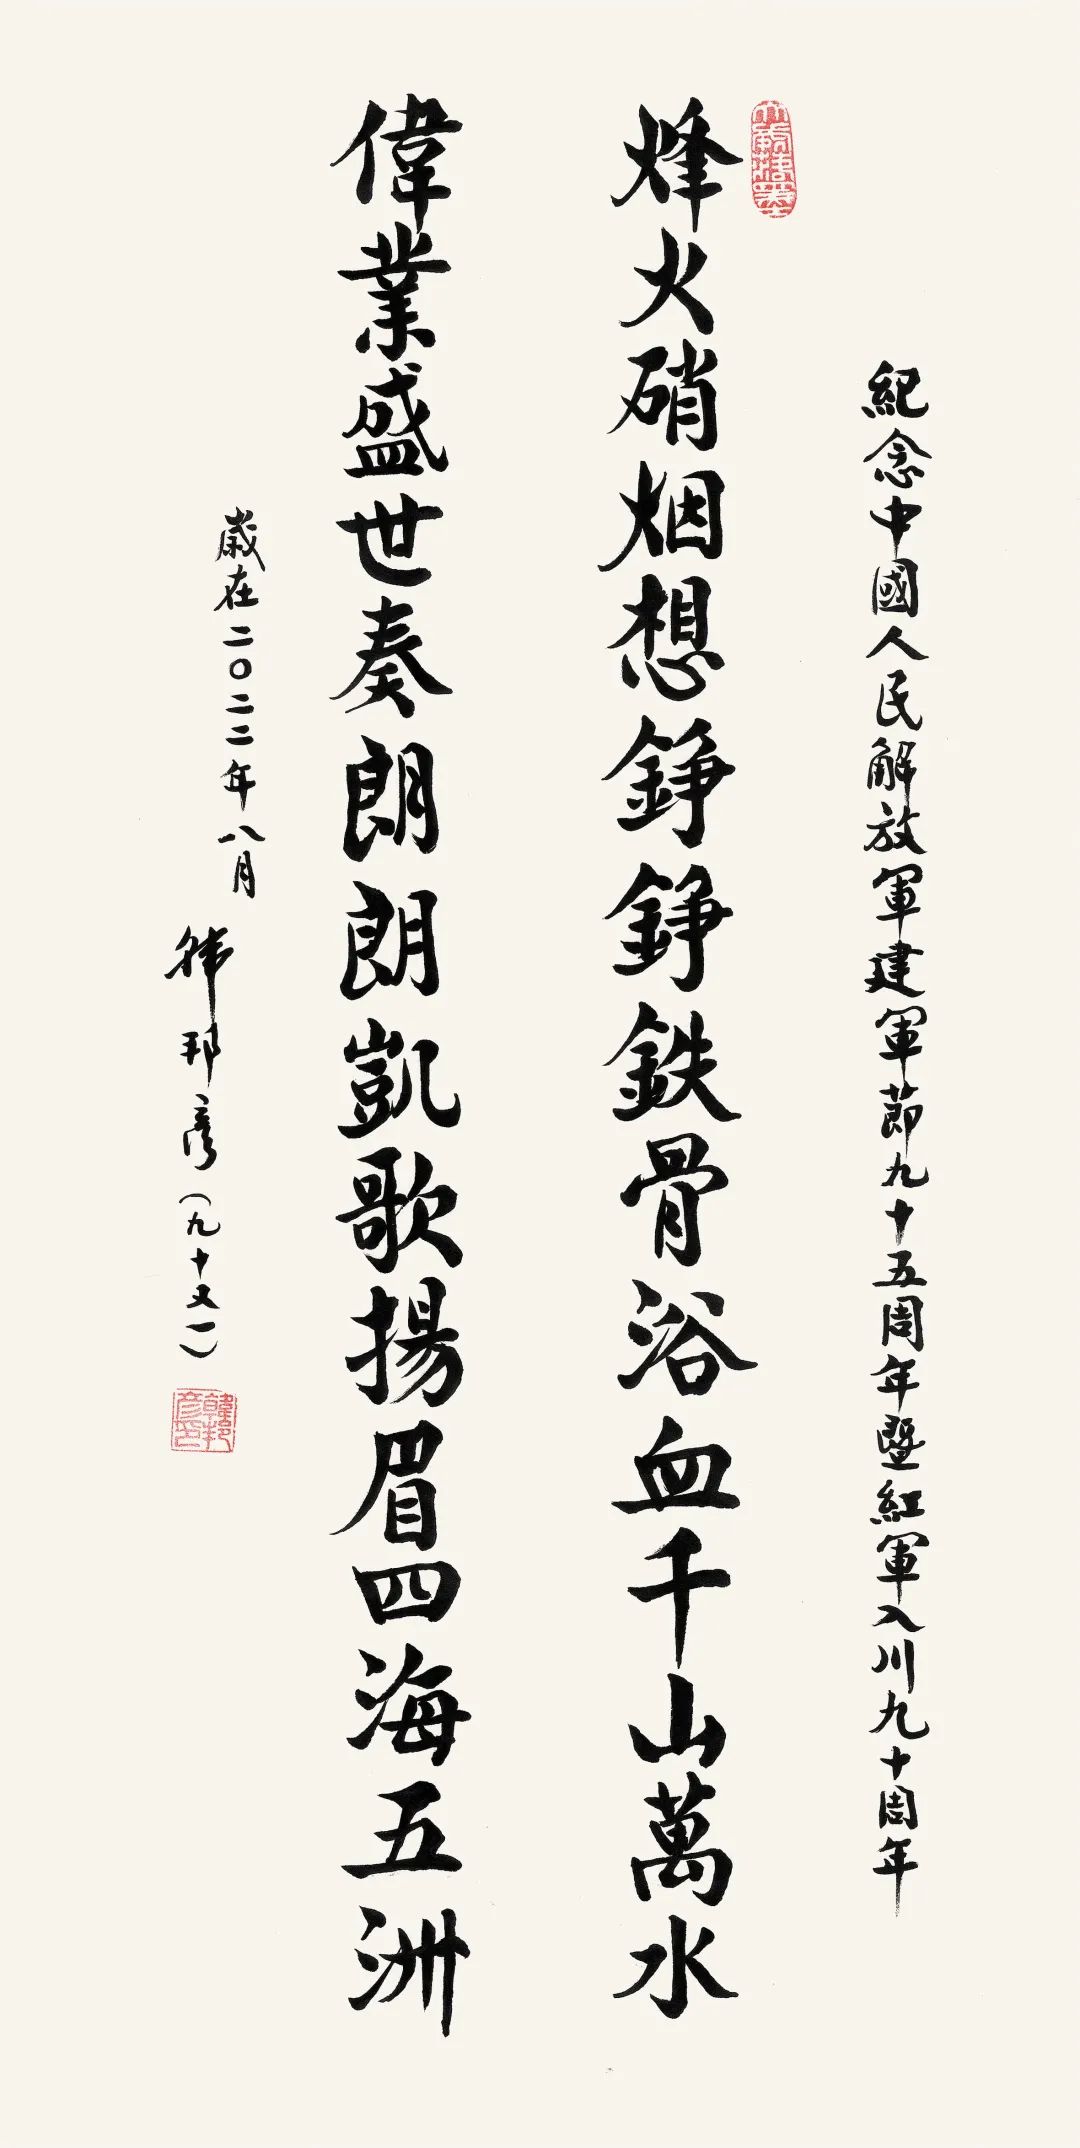 紀念中國人民解放軍建軍節九十五周年暨紅軍入川九十周年
烽火硝烟想錚錚鉄骨浴血千山萬水
偉業盛世奏朗朗凱歌揚眉四海五洲
歲在二〇二二年八月
韩邦彦（九十又一）
韓邦彦印